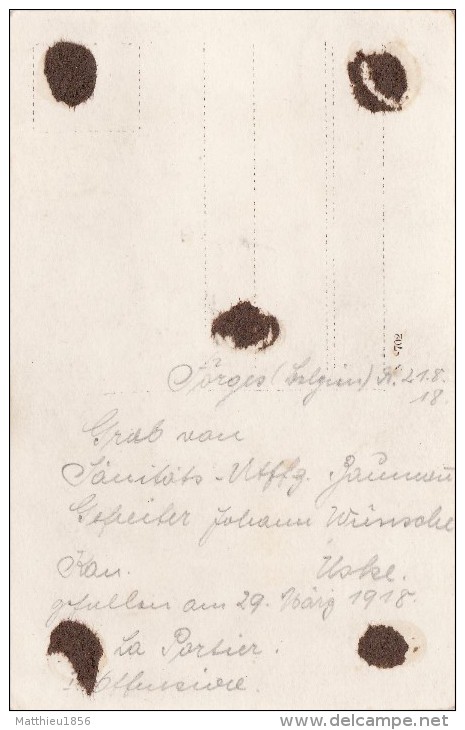 Sorges (Belgien) d. 21.8.
18.
Grab von
Sanitäts-Utffz. Baumann
Gefreiter Johann Wünsche
Kan. Uske.
gefallen am 29. März 1918.
La Portier.
Offensive.
Matthieu1856